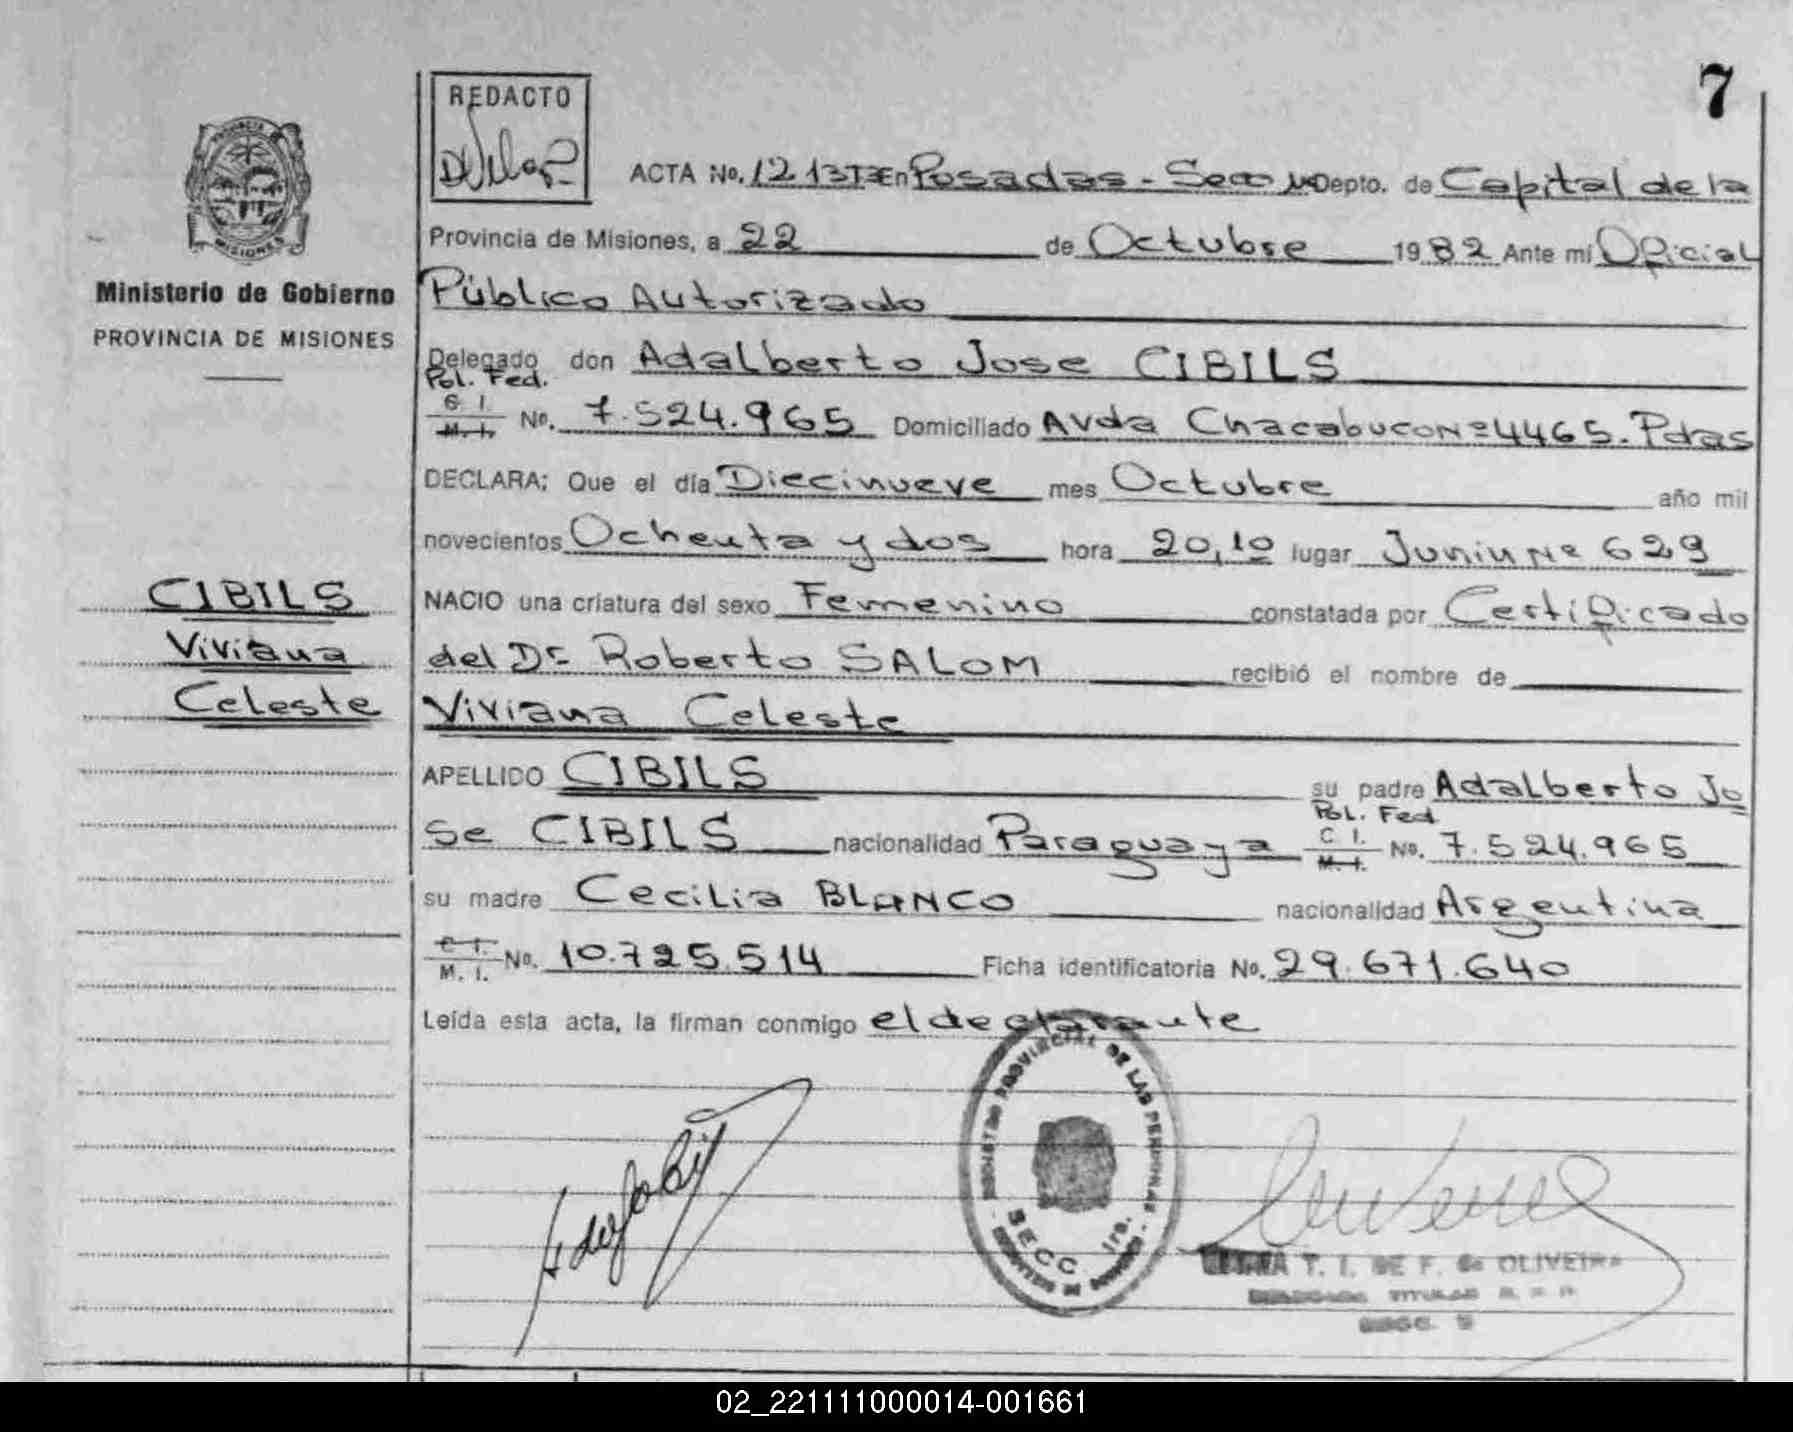 7
REDACTO
ACTA No. 1213 T3 En Posadas - Secc Depto. de Capital de la
Provincia de Misiones, a 22 de Octubre 1982 Ante mi Oficial
Público Autorizado
Delegado don Adalberto Jose CIBILS
Pol. Fed.
C. I.
M. I. No. 7.524.965 Domiciliado Avda Chacabuco Nº 4465. Pdas
DECLARA: Que el día Diecinueve mes Octubre año mil
novecientos Ochenta y dos hora 20,10 lugar Junin Nº 629
NACIO una criatura del sexo Femenino constatada por Certificado
del Dr Roberto SALOM recibió el nombre de
Viviana Celeste
APELLIDO CIBILS su padre Adalberto Jo
Pol. Fed
se CIBILS nacionalidad Paraguaya C I. M. I. No. 7.524.965
su madre Cecilia BLANCO nacionalidad Argentina
C I. M. I. No. 10.725.514 Ficha identificatoria No. 29.671.640
Leída esta acta, la firman conmigo el declarante
PROVINCIA
MISIONES
Ministerio de Gobierno
PROVINCIA DE MISIONES
CIBILS
Viviana
Celeste
REGISTRO PROVINCIAL DE LAS PERSONAS
SECC 1ra.
T. I. DE F. de OLIVEIRA
TITULAR
02_221111000014-001661